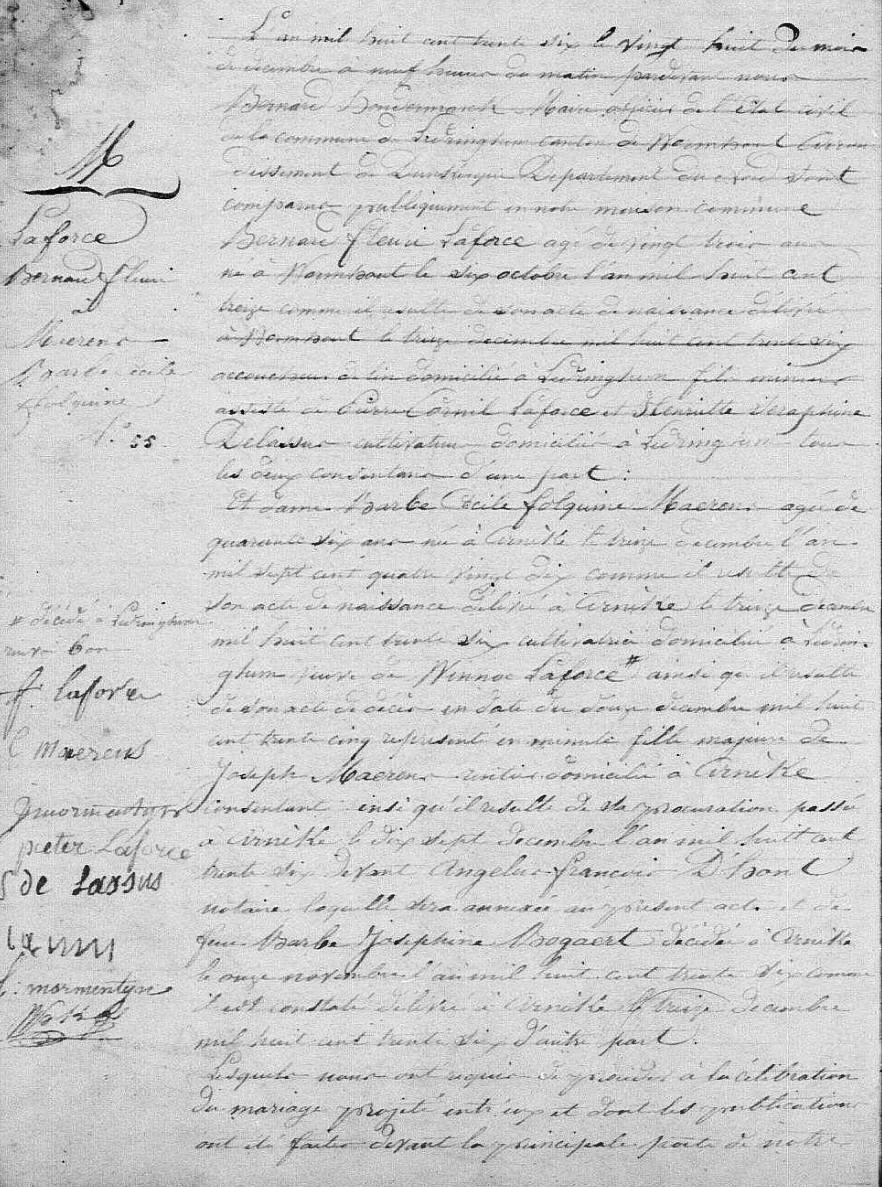 M
Laforce
Bernard fleuri
a
Maerens
Barbe Cecile
folquine
n.° 55
L'an mil huit cent trente six le vingt huit du mois
de decembre à neuf heures du matin pardevant nous
Bernard Maire officier de l'Etat civil
de la commune de Ledringhem canton de Wormhout Arron
dissement de Dunkerque Departement du nord sont
comparus publiquement en notre maison commune
Bernard fleuri Laforce agé de vingt trois ans
né à Wormhout le six octobre l'an mil huit cent
treize comme il resulte de son acte de naissance délivré
à Wormhout le treize decembre mil huit cent trente six
de lin domicilié à Ledringhem fils mineur
assisté de Pierre Cornil Laforce et Henriette Seraphine
Delassus cultivateurs domiciliés à Ledringhem tous
les deux consentans d'une part :
Et dame Barbe Cécile folquine Maerens agée de
quarante six ans né à Arnèke le treize decembre l'an
mil sept cent quatre vingt dix comme il resulte de
son acte de naissance délivré à Arnèke le treize decembre
mil huit cent trente six cultivatrice domicilié à Ledrin
ghem veuve de Winnoc Laforce # ainsi qu'il resulte
de son acte de décès en date du douze decembre mil huit
cent trente cinq représenté en minute fille majeure de
Joseph Maerens rentier domicilié à Arnèke
consentant insi qu'il resulte de sa procuration passé
à Arnèke le dix sept decembre l'an mil huit cent
trente six devant Angelus francois D'hont
notaire laquelle sera annexée au present acte et de
feue Barbe Josephine Bogaert décédée à Arnèke
le onze novembre l'an mil huit cent trente six comme
il est constaté delivré à Arnèke le treize decembre
mil huit cent trente six d'autre part.
Lesquels nous ont requis de proceder à la célébration
du mariage projeté entr'eux et dont les publications
ont été faites devant la principale porte de notre
# décédé à Ledringhem
renvoi bon
f. laforce
C maerens
pieter Laforce
S de Lassus